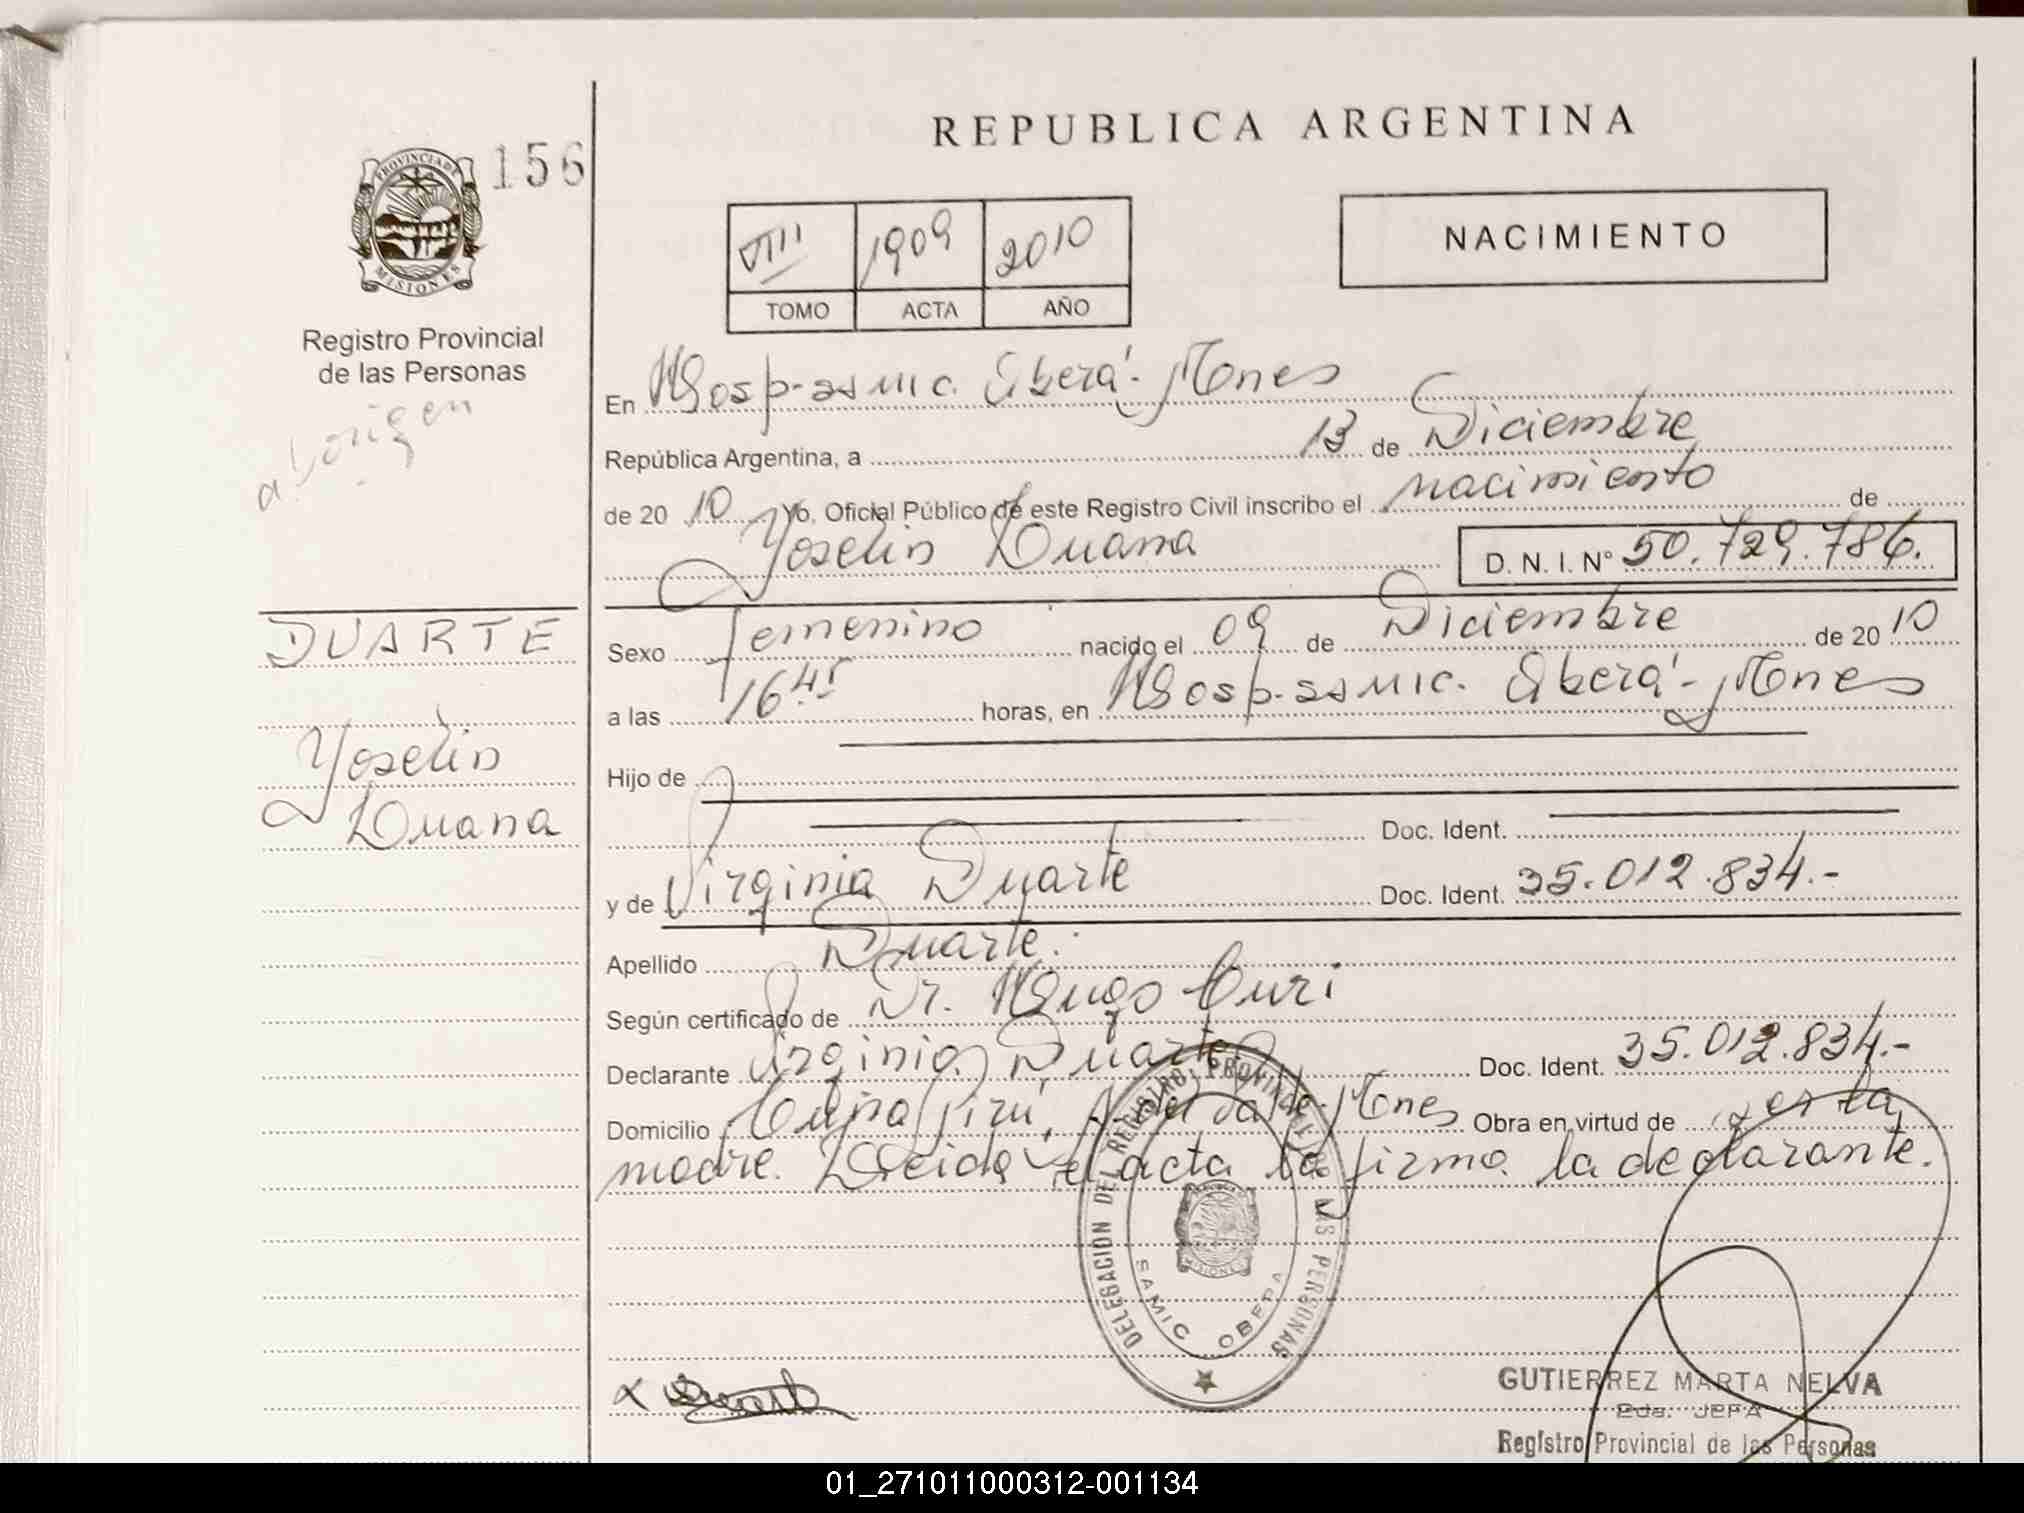 REPUBLICA ARGENTINA
156
PROVINCIA DE
MISIONES
NACIMIENTO
VIII 1909 2010
TOMO ACTA AÑO
Registro Provincial
de las Personas
aborigen
En Hosp. SAMIC. Oberá - Mones
República Argentina, a 13 de Diciembre
de 20 10 Yo, Oficial Público de este Registro Civil inscribo el nacimiento de
Yoselin Luana D. N. I. Nº 50.729.786.
DUARTE
Yoselin
Luana
Sexo Femenino nacido el 09 de Diciembre de 20 10
a las 16.45 horas, en Hosp. SAMIC. Oberá - Mones
Hijo de
Doc. Ident.
y de Virginia Duarte Doc. Ident. 35.012.834.-
Apellido Duarte.
Según certificado de Dr. Hugo Curi
Declarante Virginia Duarte Doc. Ident. 35.012.834.-
Domicilio Cuña Pirú, A. del Valle - Mones Obra en virtud de ser la
madre. Leida el acta la firma la declarante.
DELEGACION DEL REGISTRO PROVINCIAL DE LAS PERSONAS
SAMIC OBERA
Duarte
GUTIERREZ MARTA NELVA
2da. JEFA
Registro Provincial de las Personas
01_271011000312-001134